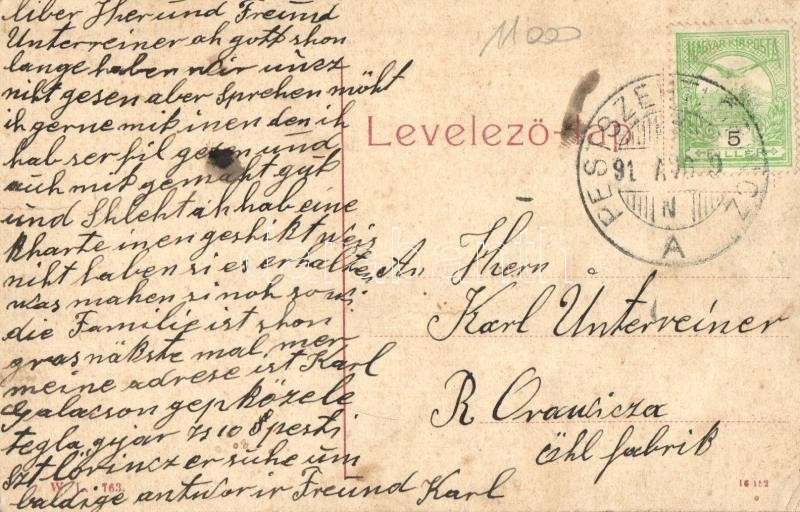 liber Hher und Freund
Unterreiner ah gott shon
lange haben wir unez
niht gesen aber Sprehen möht
ih gerne mit inen den ih
hab ser fil gesen und
auh mit gemaht gut
und Shleht ah hab eine
Kharte inen geshikt weis
niht haben si es erhalten
was mahen si noh so wi
die Familie ist shon
gras näkste mal mer
meine adrese ist Karl
Galacson gepközele
tegla gyar 7510 Spesti
Szt Lörincz er suhe um
baldige antwor ir Freund Karl
11000
MAGYAR KIR. POSTA
5
FILLÉR
Levelező-lap
PESTSZE
A
An Hhern
Karl Unterreiner
R Orawicza
Öhl fabrik
W. L. 763.
16 152